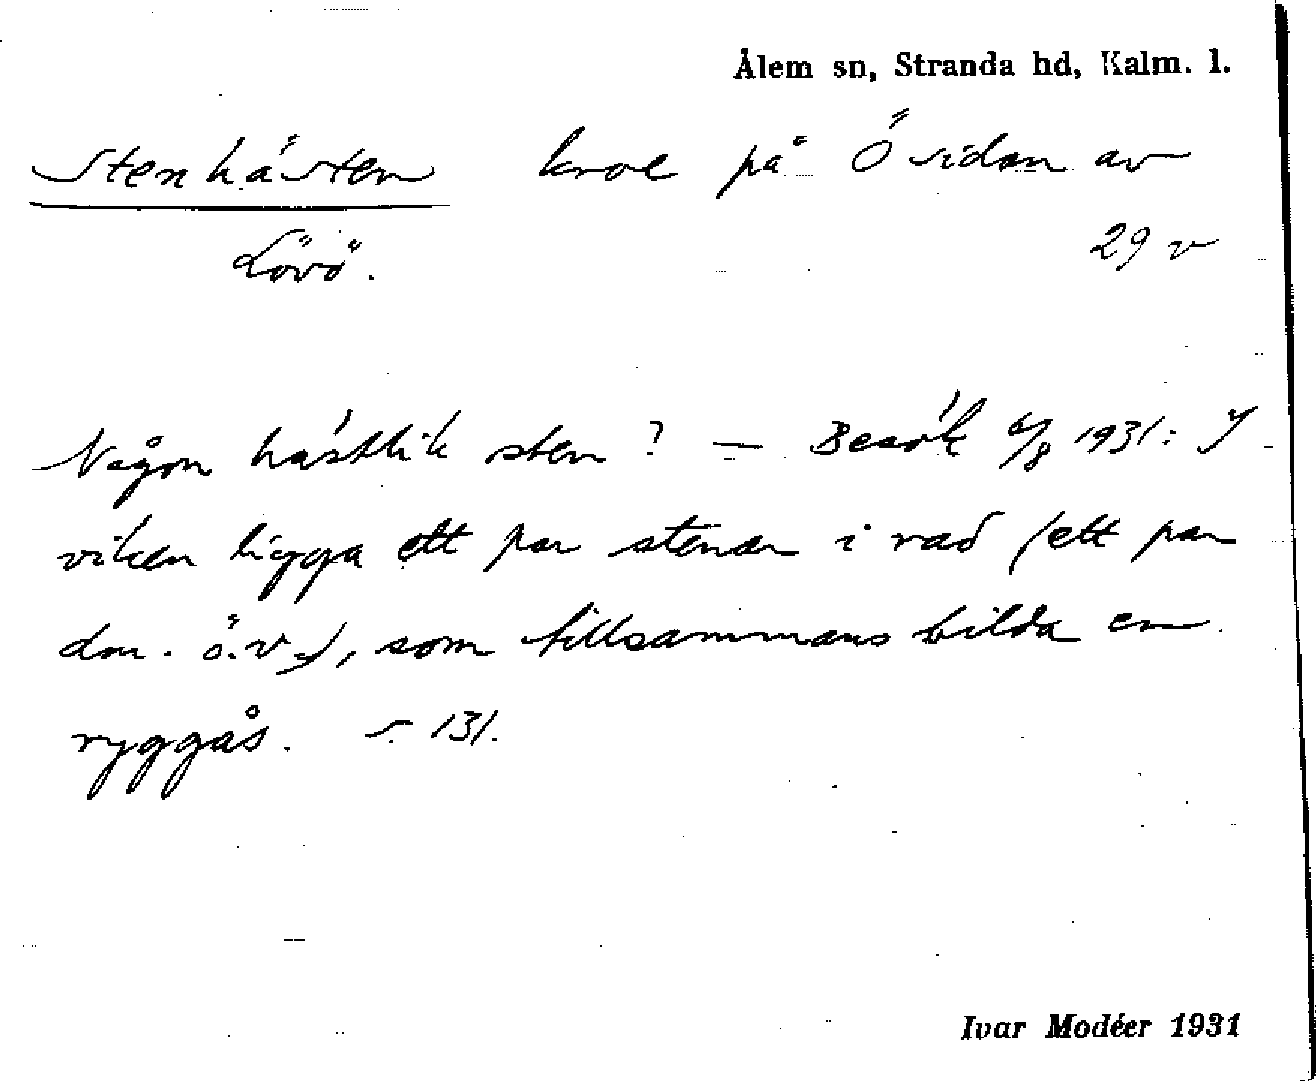 Ålem sn, Stranda hd, Kalm. l.
Stenhästen knoe på Ö sidan av
Lövö. 29 v
Någon hästlik sten? — Besök 6/8 1931: I
viken ligga ett par stenar i rad (ett par
dm. ö.v.y.), som tillsammans bilda en
ryggås. s. 131.
Ivar Modéer 1931